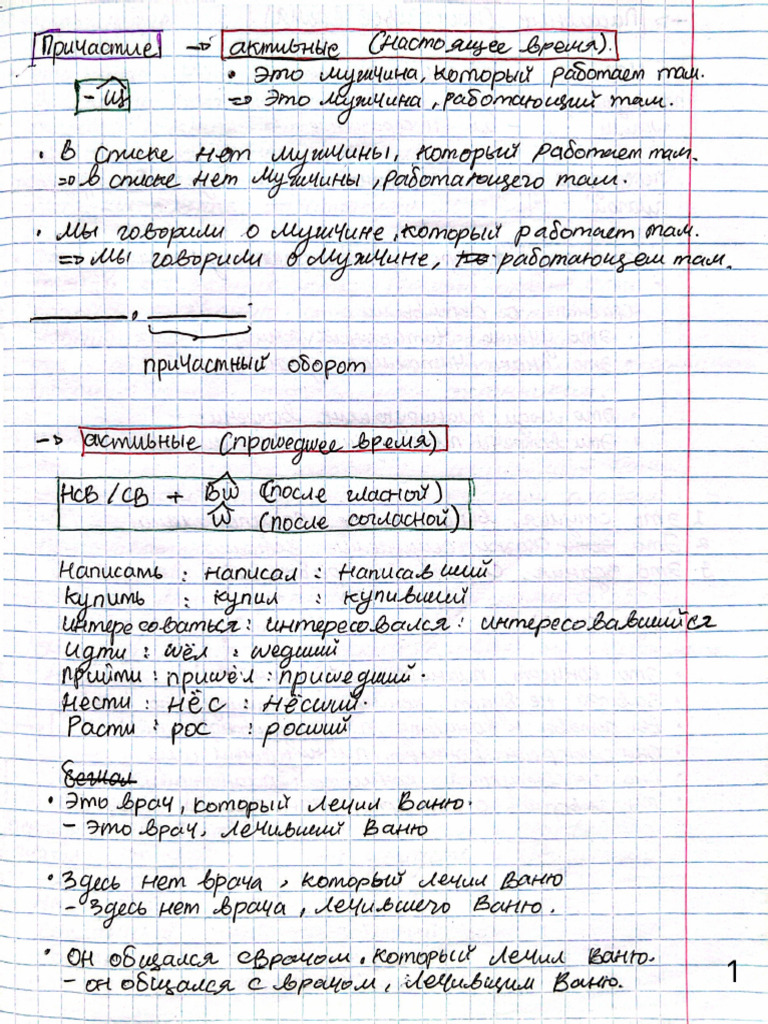 Причастие → активные (настоящее время).
• Это мужчина, который работает там.
-щ ⇒ Это мужчина, работающий там.
• В списке нет мужчины, который работает там.
⇒ в списке нет мужчины, работающего там.
• Мы говорили о мужчине, который работает там.
⇒ Мы говорили о мужчине, работающем там.
причастный оборот
→ активные (прошедшее время)
НСВ/СВ + вш (после гласной)
ш (после согласной)
Написать : написал : написавший
Купить : купил : купивший
интересоваться : интересовался : интересовавшийся
идти : шёл : шедший
прийти : пришёл : пришедший.
Нести : нёс : нёсший.
Расти : рос : росший
• Это врач, который лечил Ваню.
- Это врач, лечивший Ваню
• Здесь нет врача, который лечил Ваню
- Здесь нет врача, лечившего Ваню.
• Он общался с врачом, который лечил Ваню.
- он общался с врачом, лечившим Ваню.
1